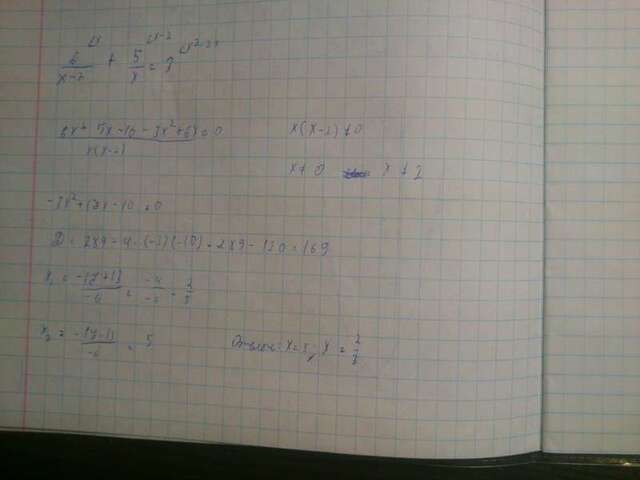 6/(x-2) + 5/x = 3
(6x + 5x - 10 - 3x² + 6x)/(x(x-2)) = 0
x(x-2) ≠ 0
x ≠ 0 x ≠ 2
-3x² + 17x - 10 = 0
D = 289 - 4 · (-3)(-10) = 289 - 120 = 169
x₁ = (-17+13)/-6 = -4/-6 = 2/3
x₂ = (-17-13)/-6 = 5
Ответ: x = 5, x = 2/3